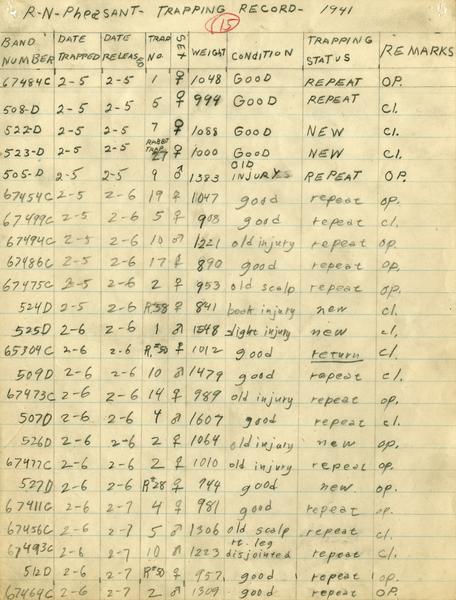 R-N-Pheasant- TRAPPING RECORD- 1941
15
BAND NUMBER DATE TRAPPED DATE RELEASED TRAP No. SEX WEIGHT CONDITION TRAPPING STATUS REMARKS
67484C 2-5 2-5 1 ♀ 1048 GOOD REPEAT OP.
508-D 2-5 2-5 5 ♀ 994 GOOD REPEAT Cl.
522-D 2-5 2-5 7 ♀ 1088 GOOD NEW Cl.
523-D 2-5 2-5 RABBIT TRAP 27 ♀ 1000 GOOD NEW CL.
505-D 2-5 2-5 9 ♂ 1383 OLD INJURYS REPEAT OP.
67454C 2-5 2-6 19 ♀ 1047 good repeat op.
67499C 2-5 2-6 5 ♀ 908 good repeat cl.
67494C 2-5 2-6 10 ♂ 1221 old injury repeat op.
67486C 2-5 2-6 17 ♀ 890 good repeat op.
67475C 2-5 2-6 2 ♀ 953 old scalp repeat op.
524D 2-5 2-6 R#38 ♀ 841 beak injury new cl.
525D 2-6 2-6 1 ♂ 1548 slight injury new cl.
65304C 2-6 2-6 R#50 ♀ 1012 good return cl.
509D 2-6 2-6 10 ♂ 1479 good repeat cl.
67473C 2-6 2-6 14 ♀ 989 old injury repeat op.
507D 2-6 2-6 4 ♂ 1607 good repeat cl.
526D 2-6 2-6 2 ♀ 1064 old injury new op.
67477C 2-6 2-6 2 ♀ 1010 old injury repeat op.
527D 2-6 2-6 R#28 ♀ 744 good new op.
67411C 2-6 2-7 4 ♀ 981 good repeat op.
67456C 2-6 2-7 5 ♂ 1306 old scalp repeat cl.
67493C 2-6 2-7 10 ♂ 1223 rt. leg disjointed repeat cl.
512D 2-6 2-7 R#50 ♀ 957 good repeat op.
67464C 2-6 2-7 2 ♂ 1309 good repeat OP.